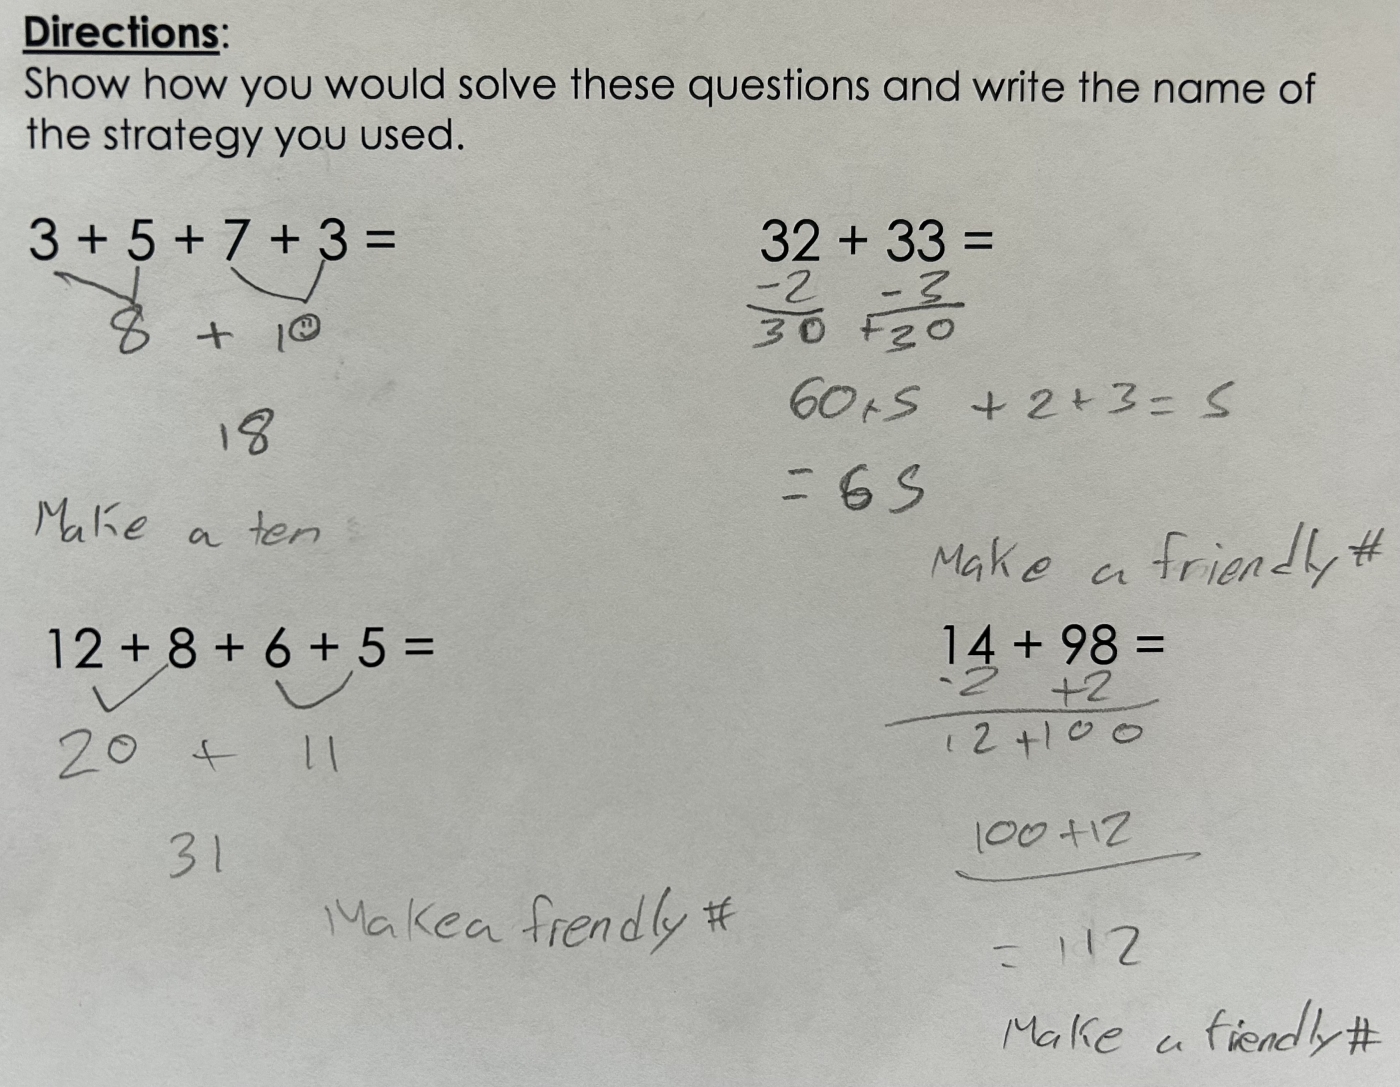 Directions:
Show how you would solve these questions and write the name of
the strategy you used.
3 + 5 + 7 + 3 =
8 + 10
18
Make a ten
32 + 33 =
-2 -3
30 +30
60+5 +2+3=5
= 65
Make a friendly #
12 + 8 + 6 + 5 =
20 + 11
31
Make a frendly #
14 + 98 =
-2 +2
12+100
100+12
= 112
Make a fiendly #